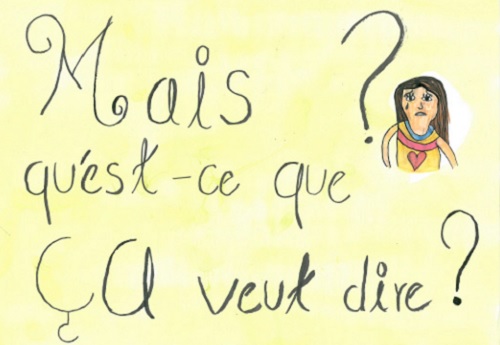 Mais ?
qu'est-ce que
ÇA veut dire ?